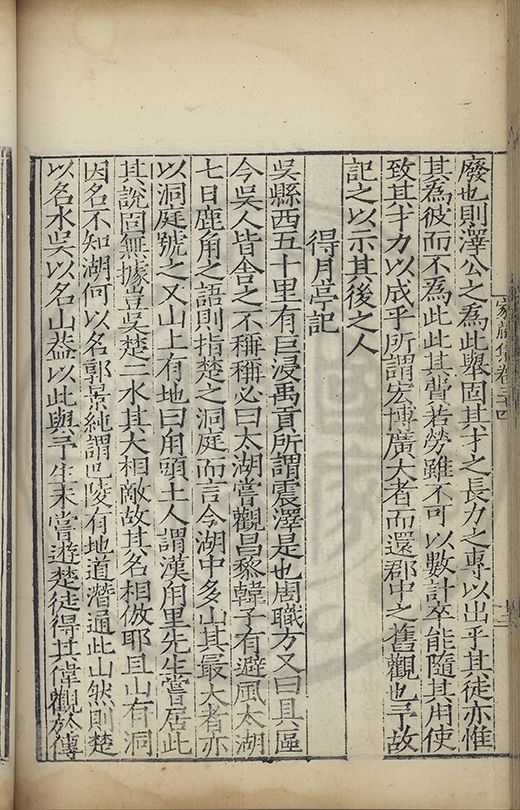 廢也則澤公之為此舉固其才之長力之專以出乎其徒亦惟
其為彼而不為此此其費若勞雖不可以數計卒能隨其用使
致其才力以成乎所謂宏博廣大者而還郡中之舊觀也予故
記之以示其後之人
得月亭記
吳縣西五十里有巨浸禹貢所謂震澤是也周職方又曰具區
今吳人皆舍之不稱稱必曰太湖嘗觀昌黎韓子有避風太湖
七日鹿角之語則指楚之洞庭而言今湖中多山其最大者亦
以洞庭號之又山上有地曰甪頭土人謂漢甪里先生嘗居此
其說固無據豈吳楚二水其大相敵故其名相倣耶且山有洞
因名不知湖何以名郭景純謂巴陵有地道潛通此山然則楚
以名水吳以名山葢以此與予生未嘗遊楚徒得其偉觀於傳
家藏集卷三十四